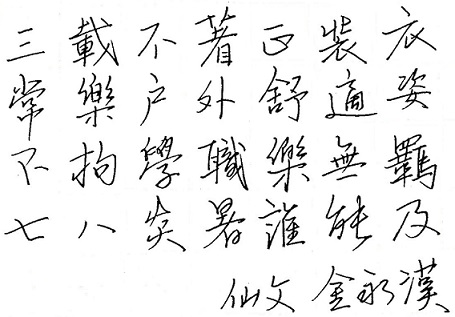 三載不著正裝衣
常樂戶外舒適姿
不拘學職樂無羈
七八炎暑誰能及
仙文 金永漢